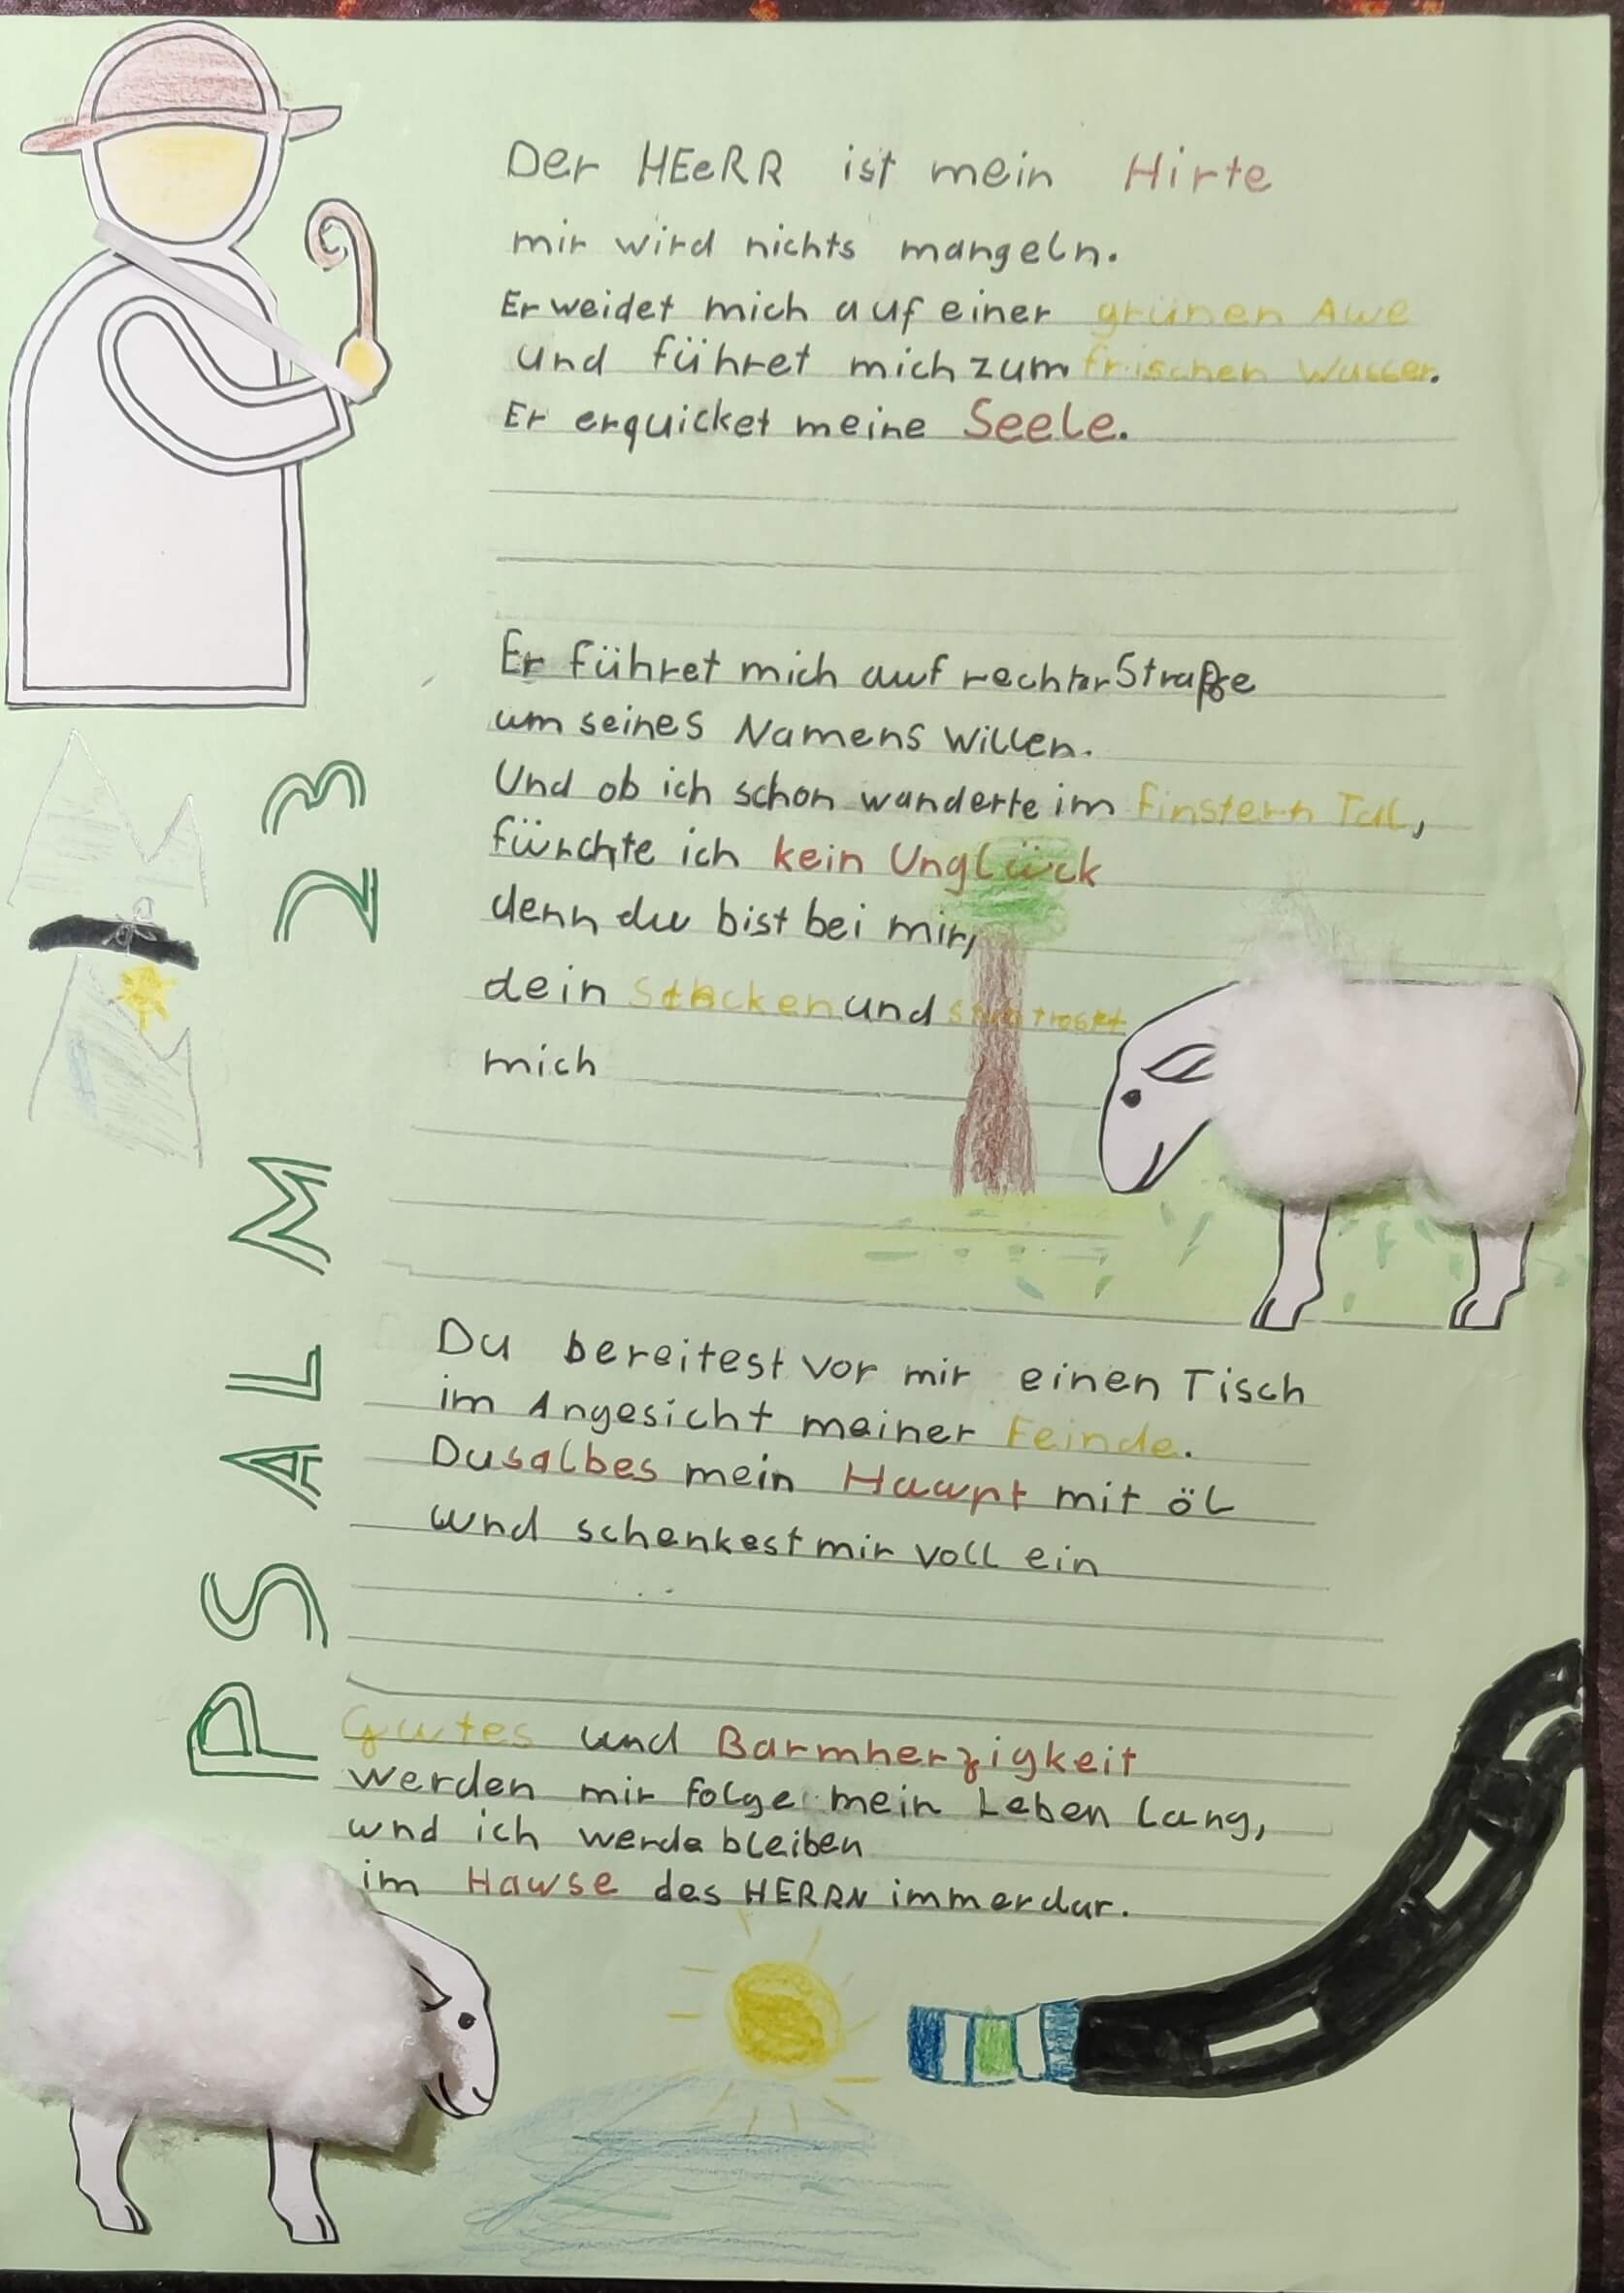 PSALM 23
Der HEeRR ist mein Hirte
mir wird nichts mangeln.
Er weidet mich auf einer grünen Aue
und führet mich zum frischen Wasser.
Er erquicket meine Seele.
Er führet mich auf rechter Straße
um seines Namens willen.
Und ob ich schon wanderte im finstern Tal,
fürchte ich kein Unglück
denn du bist bei mir,
dein Stecken und
mich
Du bereitest vor mir einen Tisch
im Angesicht meiner Feinde.
Du salbes mein Haupt mit öl
und schenkest mir voll ein
Gutes und Barmherzigkeit
werden mir folge mein Leben lang,
und ich werde bleiben
im Hause des HERRN immerdar.